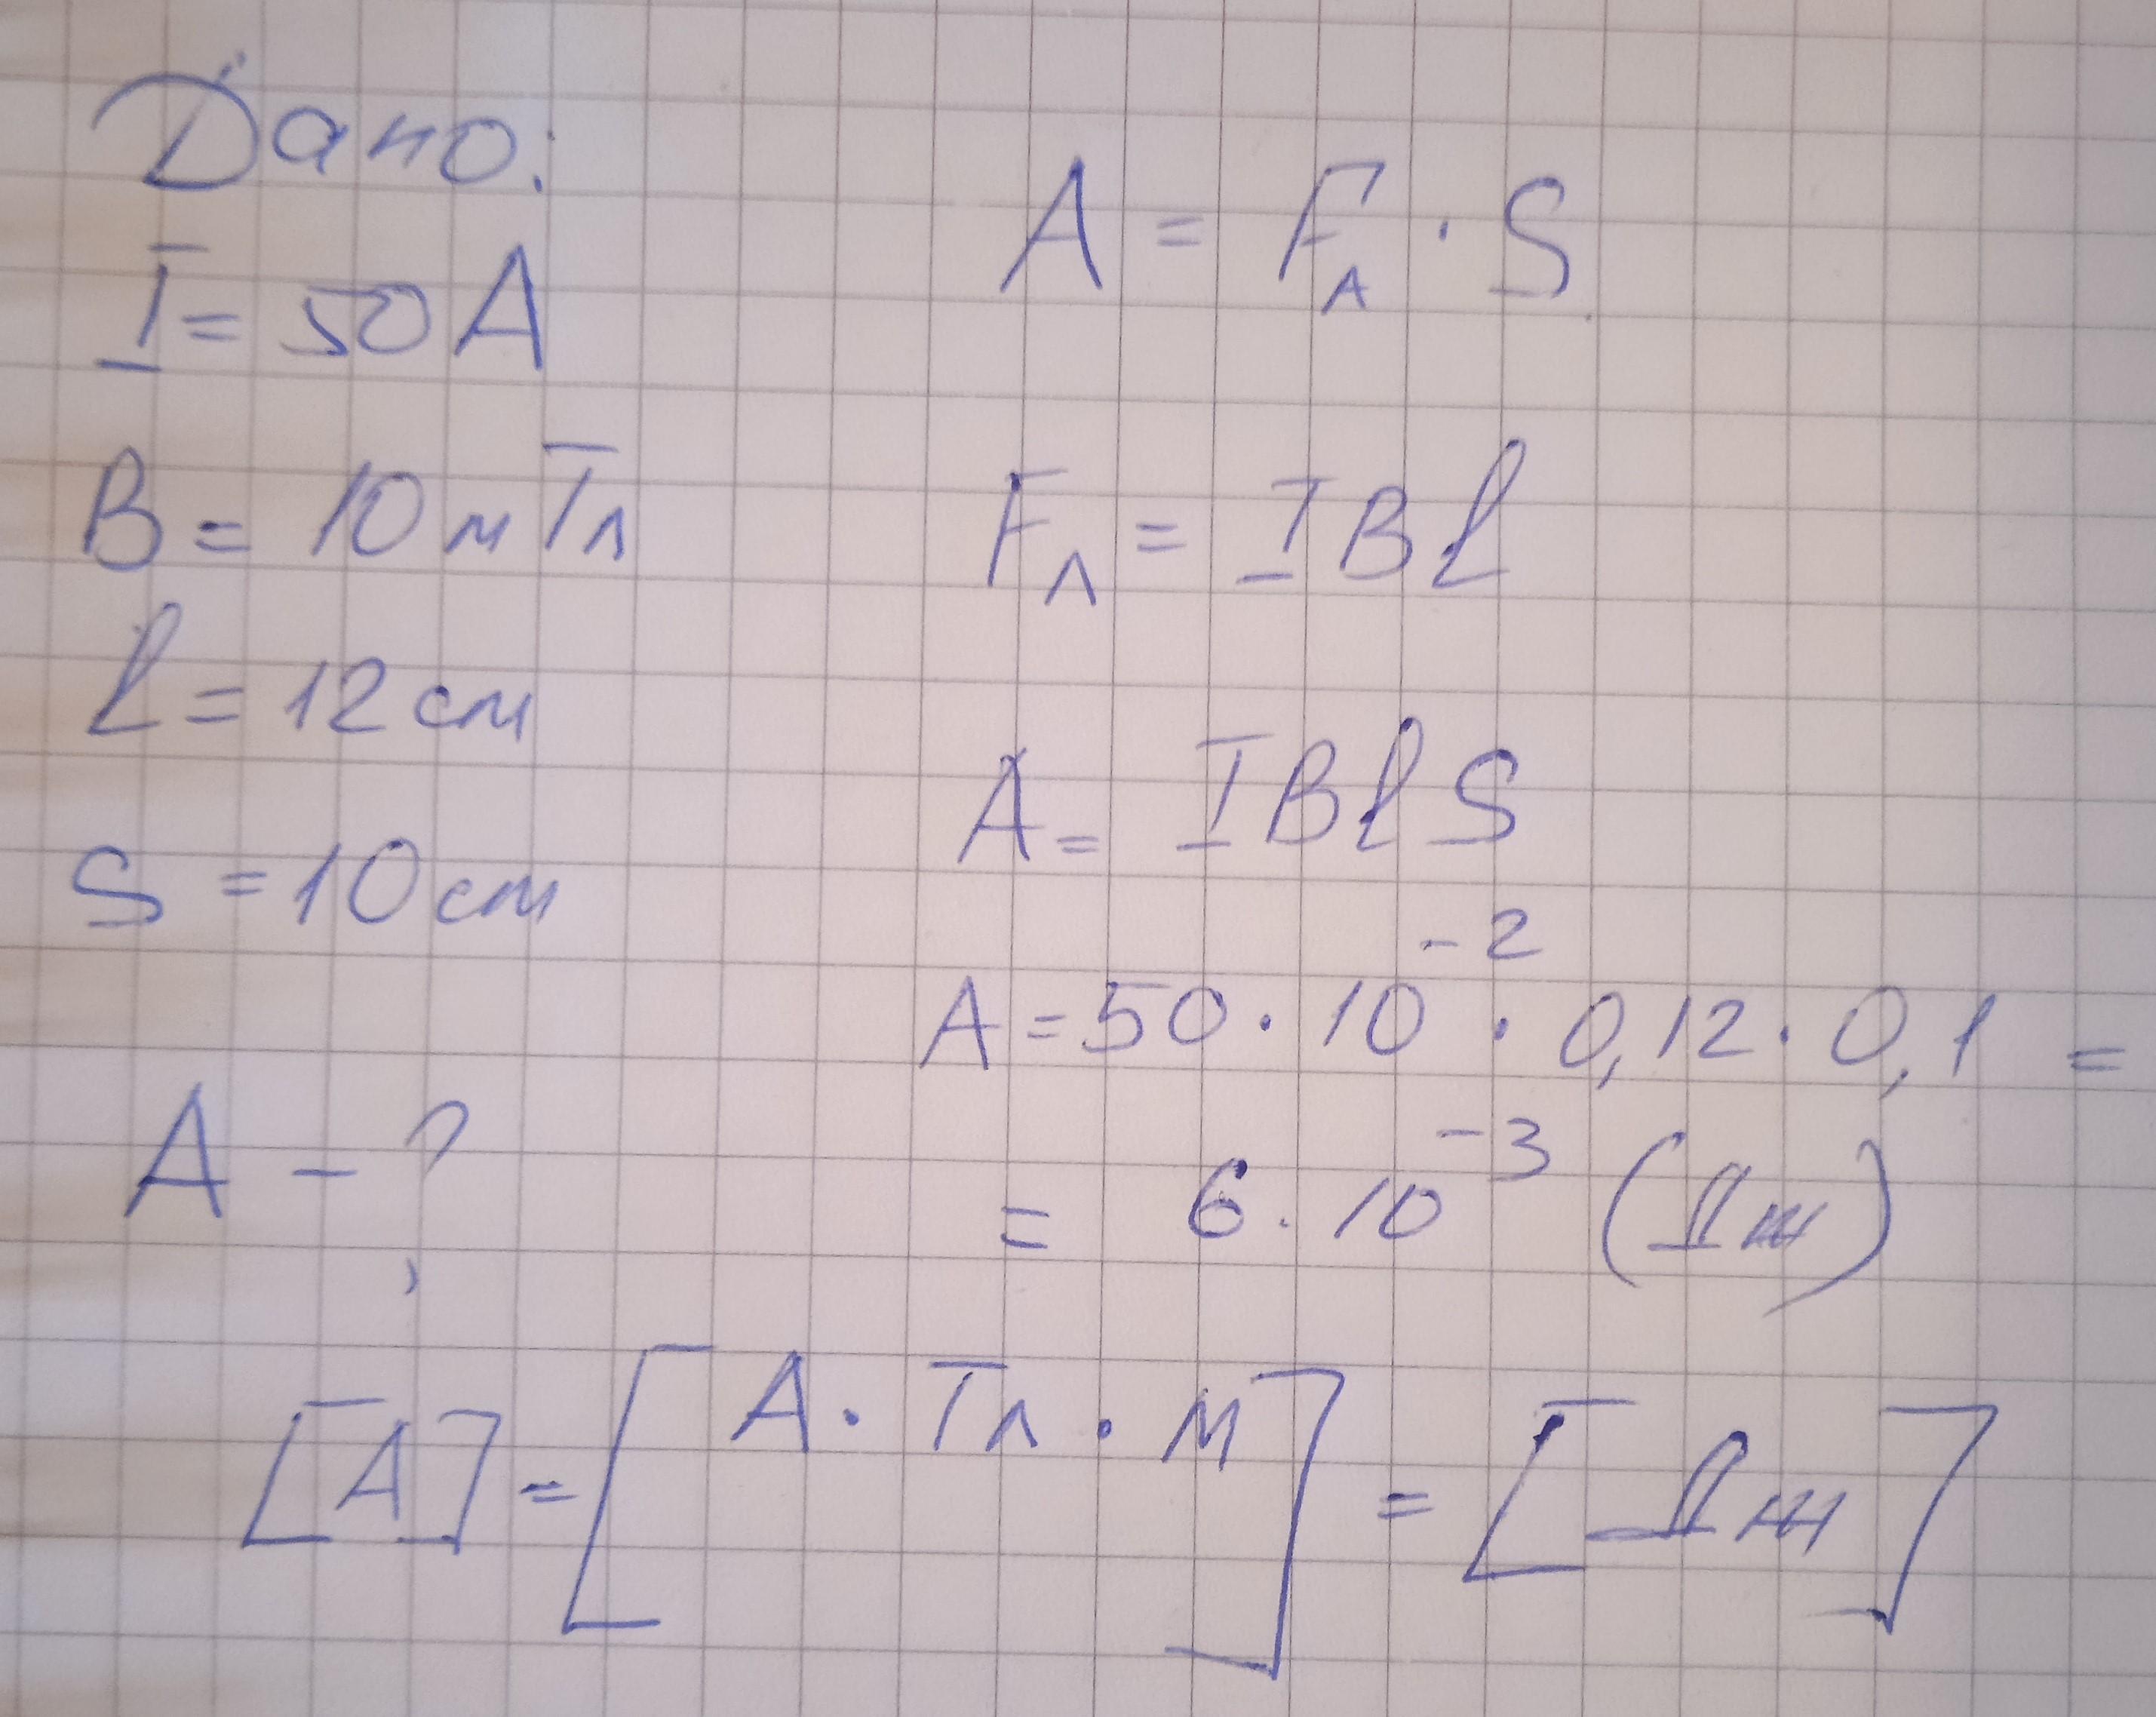 Дано:
I = 50 А
B = 10 мТл
l = 12 см
S = 10 см
A - ?
A = F_A · S
F_Л = I B l
A = I B l S
A = 50 · 10^-2 · 0,12 · 0,1 =
= 6 · 10^-3 (Дж)
[A] = [А · Тл · м] = [Дж]